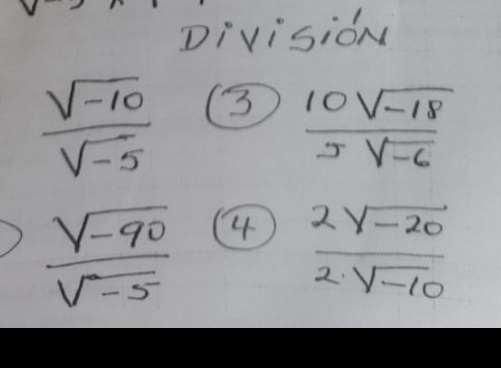 División
√-10 / √-5
(3) 10√-18 / 5√-6
√-90 / √-5
(4) 2√-20 / 2·√-10